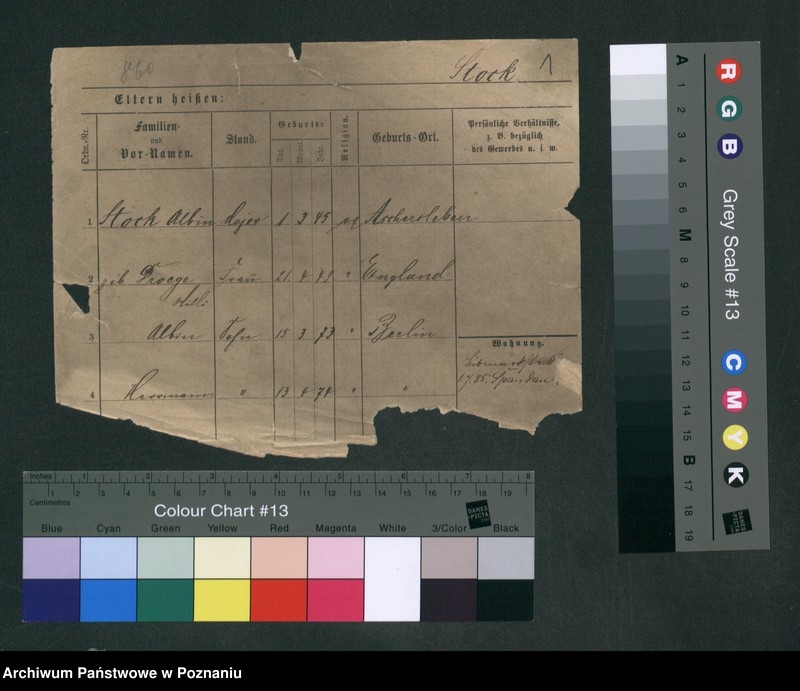 Stock 1
Eltern heißen:
Ordn.-Nr.
Familien-
und
Vor-Namen.
Stand.
Geburts-
Tag.
Monat.
Jahr.
Religion.
Geburts-Ort.
Persönliche Verhältnisse,
z. B. bezüglich
des Gewerbes u. s. w.
1 Stock Albin Major 1 3 45 ev Aschersleben
2 geb Droege Frau 21 4 49 " England
3 Albin Sohn 15 3 73 " Berlin
4 Herrmann " 13 4 74 " "
Wohnung.
17.85. Spandau.
A 1 2 3 4 5 6 M 8 9 10 11 12 13 14 15 B 17 18 19
R G B
Grey Scale #13
C M Y K
DANES
PICTA
.COM
Inches 1 2 3 4 5 6 7 8
Centimetres 1 2 3 4 5 6 7 8 9 10 11 12 13 14 15 16 17 18 19
Colour Chart #13
DANES
PICTA
.COM
Blue Cyan Green Yellow Red Magenta White 3/Color Black
Archiwum Państwowe w Poznaniu